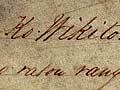 Ko. Wikito.
a ratou rang